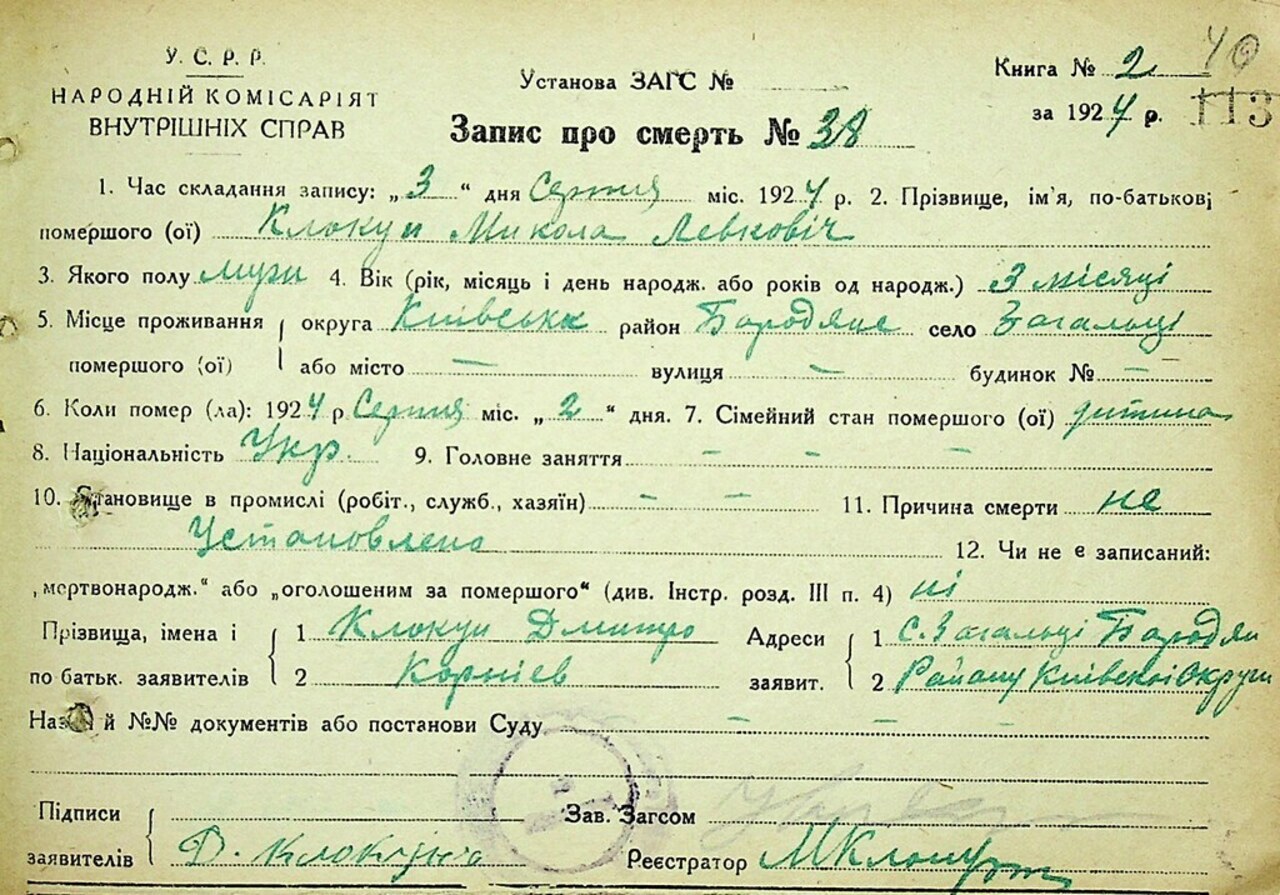 У. С. Р. Р.
НАРОДНІЙ КОМІСАРІЯТ
ВНУТРІШНІХ СПРАВ
Установа ЗАГС №
Запис про смерть № 38
Книга № 2 40
за 1924 р. 113
1. Час складання запису: „3“ дня Серпня міс. 1924 р. 2. Прізвище, ім'я, по-батькові
помершого (ої) Клокун Микола Левковіч
3. Якого полу муж 4. Вік (рік, місяць і день народж. або років од народж.) 3 місяці
5. Місце проживання { округа Київська район Бородяне село Загальці
помершого (ої) або місто — вулиця — будинок № —
6. Коли помер (ла): 1924 р Серпня міс. „2“ дня. 7. Сімейний стан помершого (ої) дитина
8. Національність Укр. 9. Головне заняття — — —
10. Становище в промислі (робіт., служб., хазяїн) — — 11. Причина смерти не
Установлена 12. Чи не є записаний:
„мертвонародж.“ або „оголошеним за помершого“ (див. Інстр. розд. III п. 4) ні
Прізвища, імена і { 1 Клокун Дмитро Адреси { 1 С. Загальці Бородян
по батьк. заявителів 2 Корніев заявит. 2 Району Київскоі Округи
Назви й №№ документів або постанови Суду — — —
Підписи {
заявителів Д. Клокун
Зав. Загсом
Реєстратор